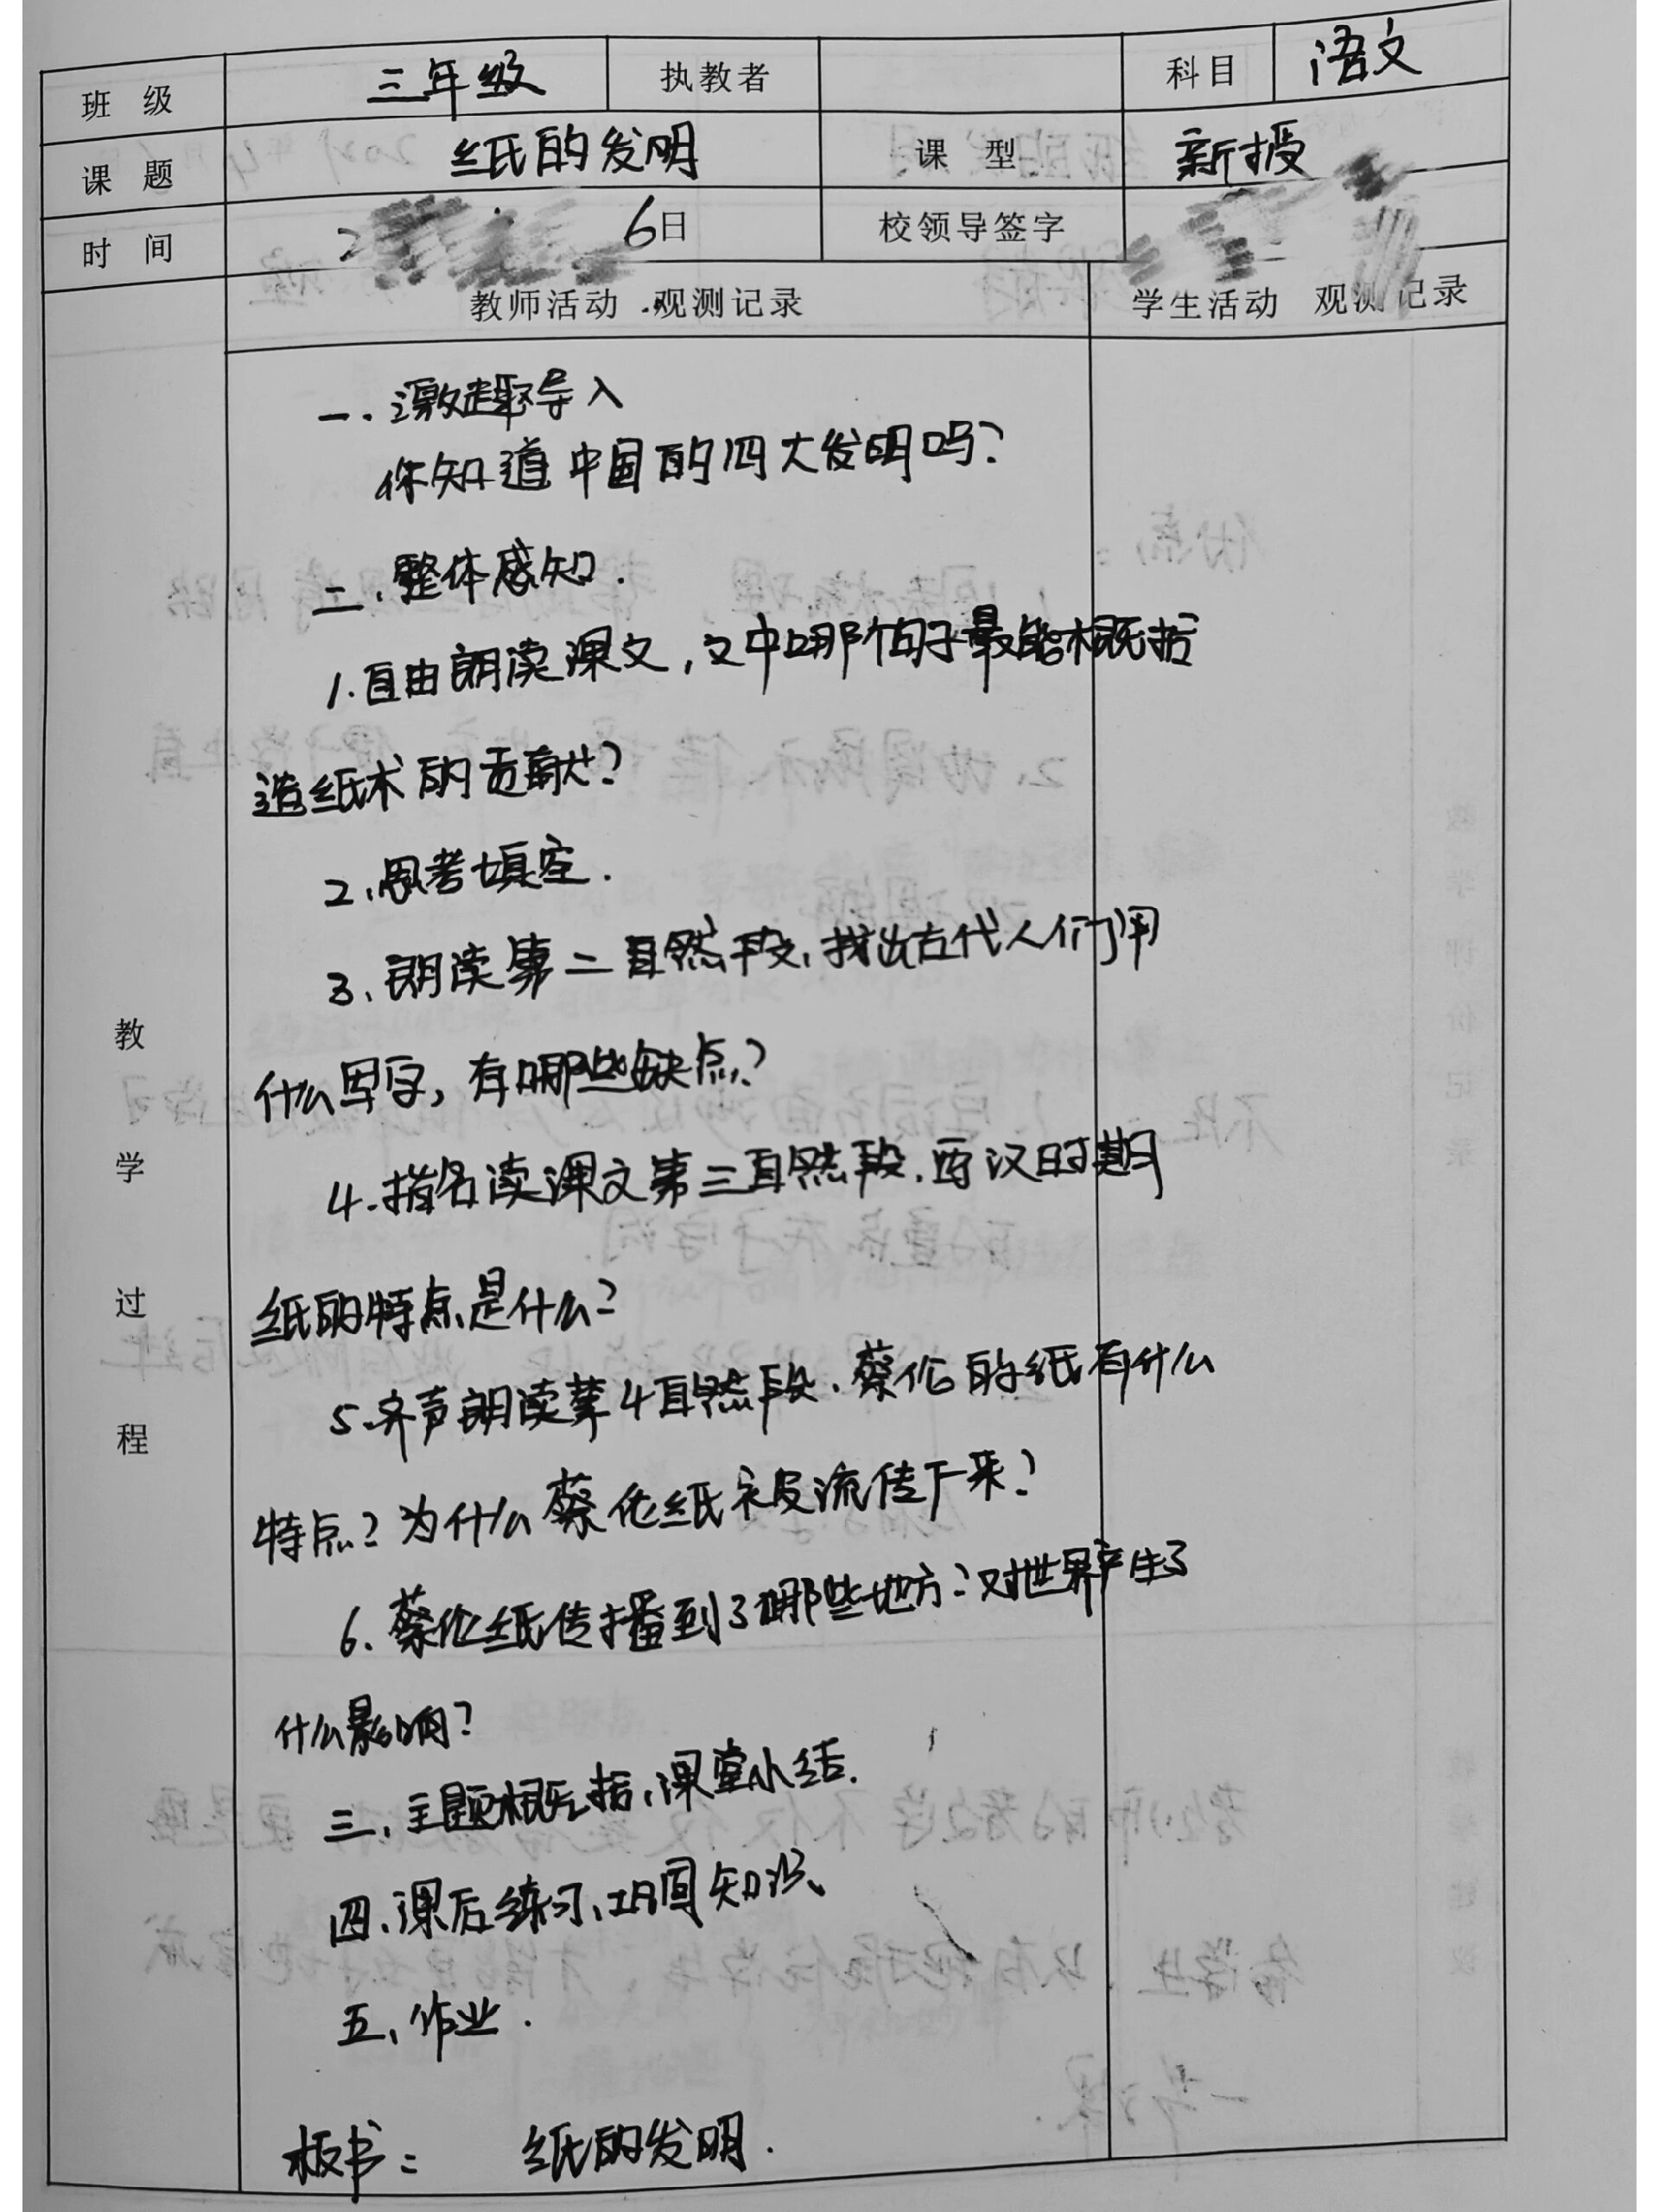 班 级 三年级 执教者 科目 语文
课 题 纸的发明 课 型 新授
时 间 2 6日 校领导签字
教师活动 观测记录 学生活动 观测记录
教学过程
一.激趣导入
你知道中国的四大发明吗?
二.整体感知.
1.自由朗读课文,文中哪个句子最能概括
造纸术的贡献?
2.思考填空.
3.朗读第二自然段,找出古代人们用
什么写字,有哪些缺点?
4.指名读课文第三自然段.西汉时期
纸的特点是什么?
5.齐声朗读第4自然段.蔡伦的纸有什么
特点?为什么蔡伦纸被流传下来?
6.蔡伦纸传播到了哪些地方?对世界产生了
什么影响?
三、主题概括,课堂小结.
四、课后练习、巩固知识
五、作业.
板书: 纸的发明.